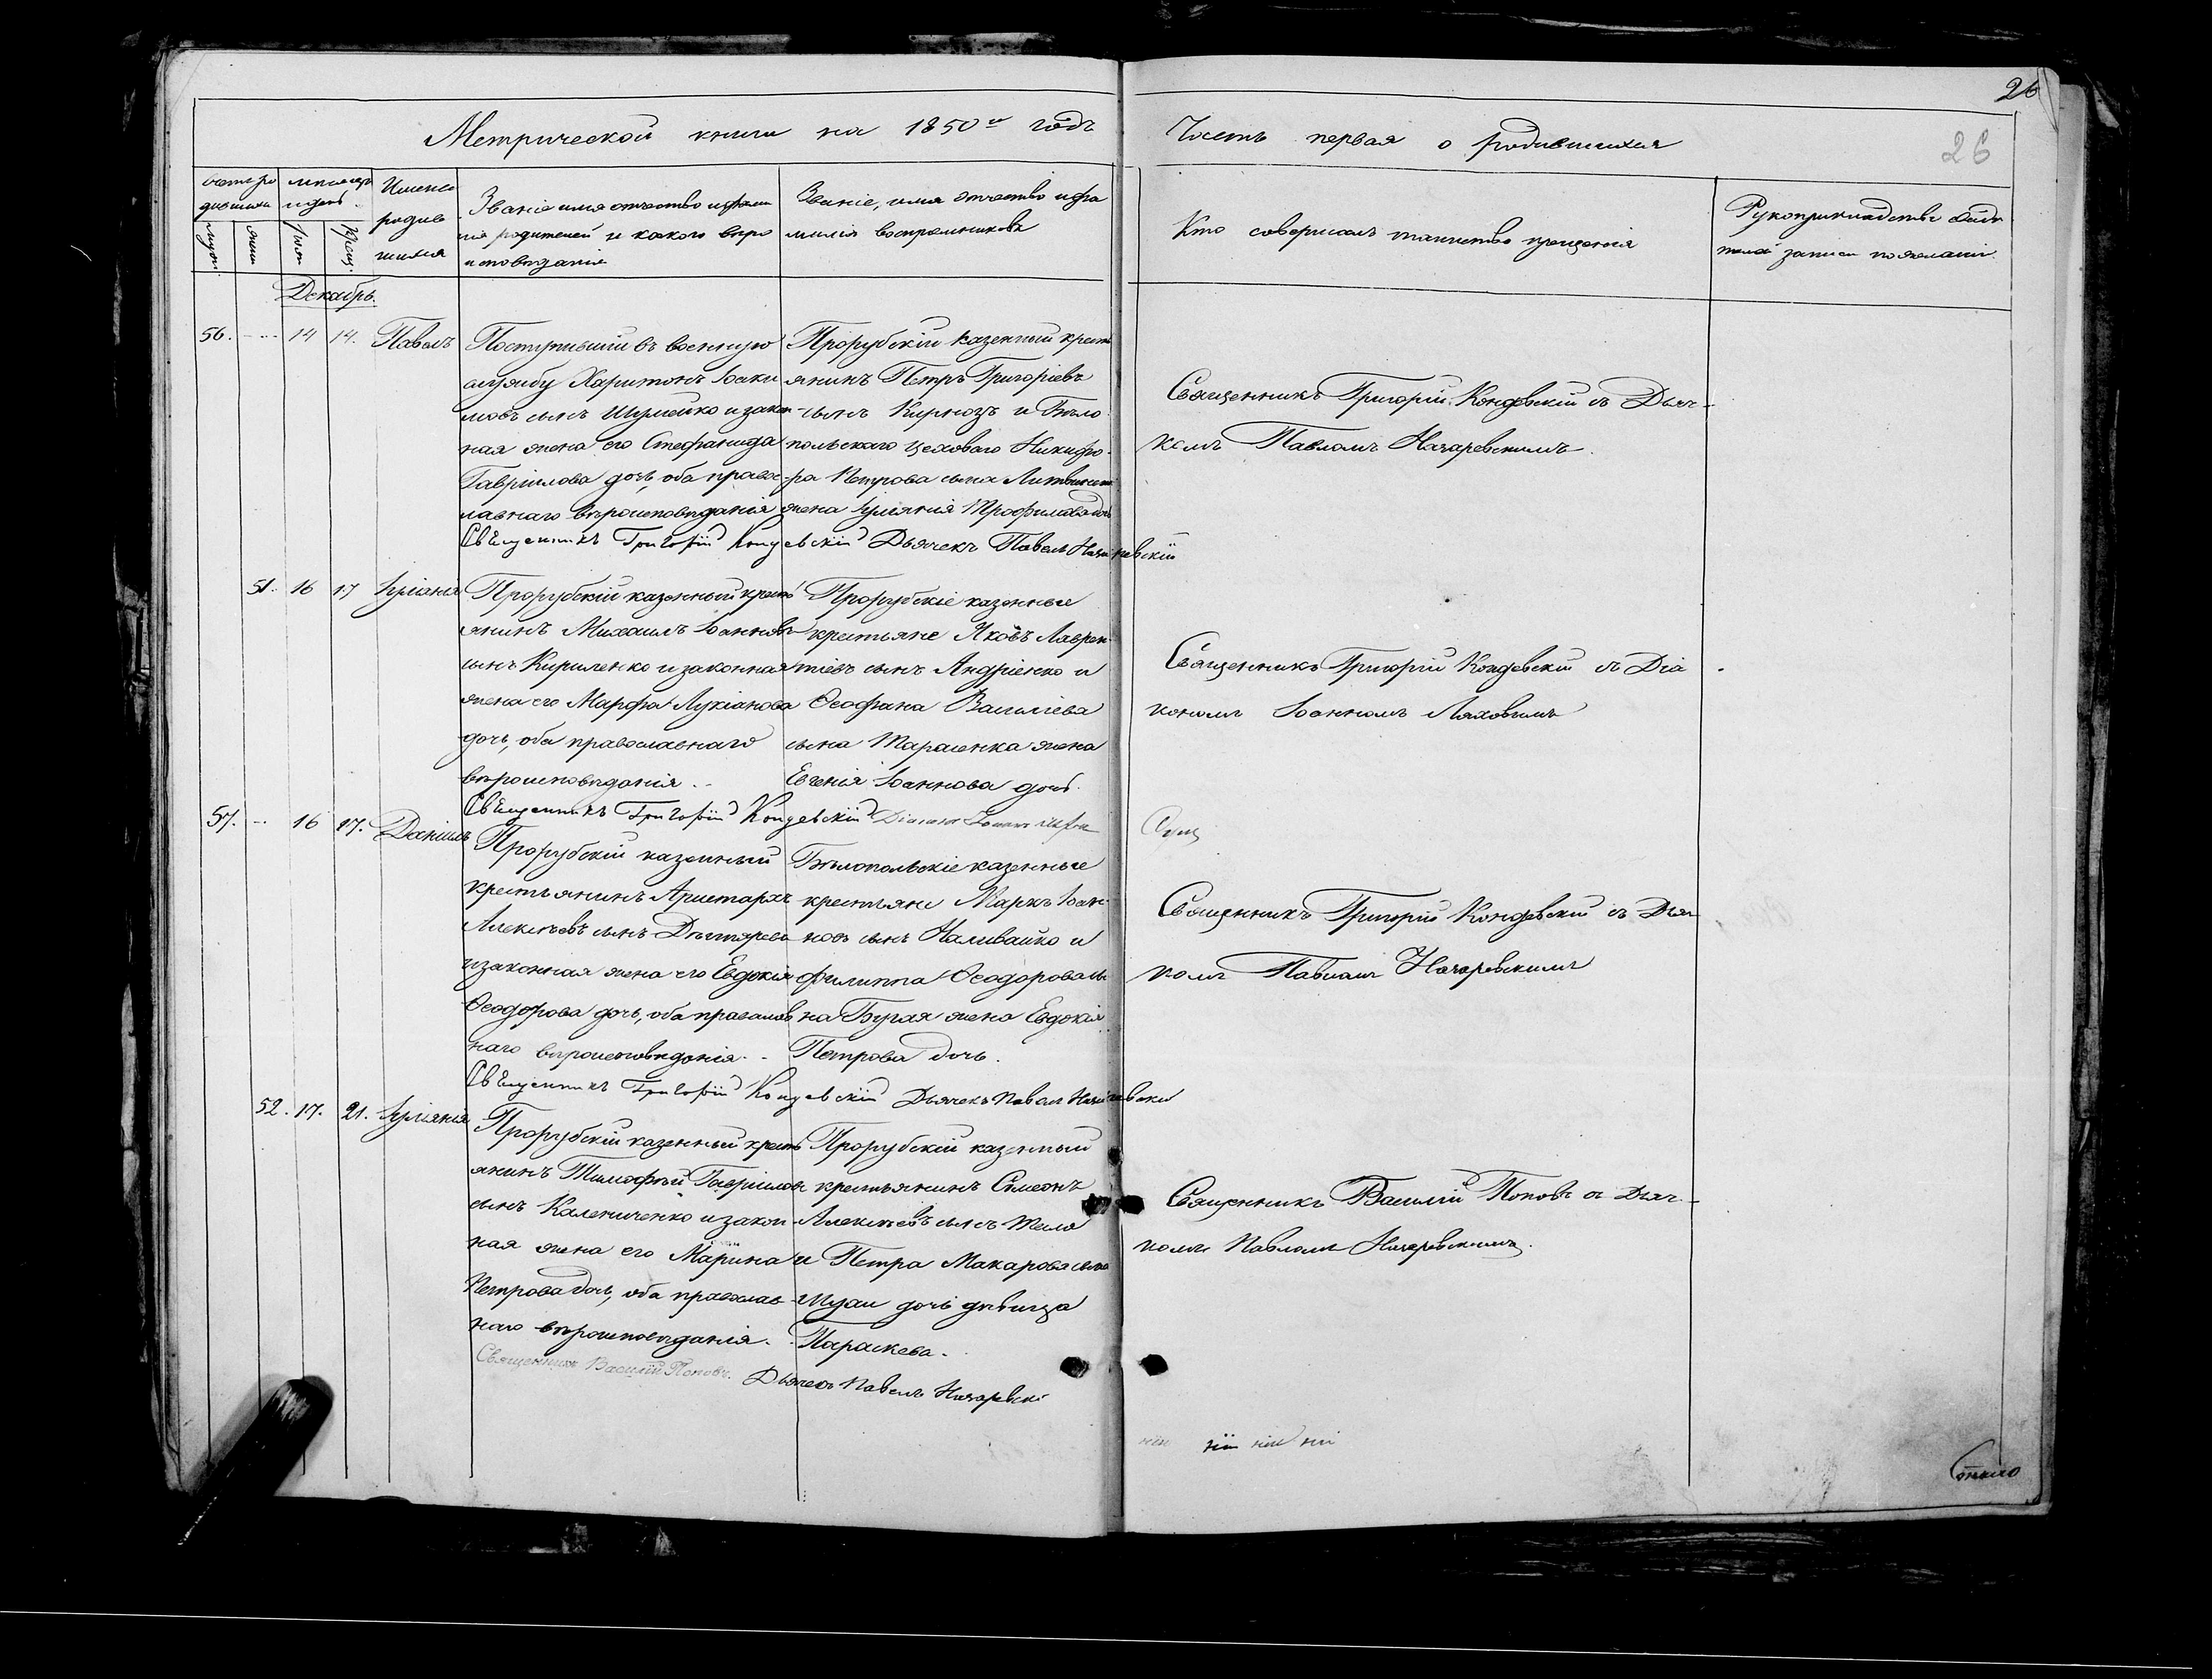 26
26
Метрической книги на 1850й годъ
Часть первая о родившихся
мѣсяцъ
и день
Имена
родив
шихся
Званіе имя отчество и фами
лія родителей и какого вѣро
исповѣданія
Званіе, имя отчество и фа
милія воспріемниковъ
Кто совершалъ таинство крещенія
Рукоприкладство
записи по желанію
Декабрь.
56. 14 14. Павелъ
Поступившій въ военную
службу Харитонъ Іоаки
мовъ сынъ Шумейко и закон-
ная жена его Стефанида
Гавріилова дочь, оба правос-
лавнаго вѣроисповѣданія
Прорубскій казенный кресть
янинъ Петръ Григоріевъ
сынъ и Бѣло
польскаго цеховаго Никифо-
ра Петрова сына
жена Іуліанія Трофимова дочь
Священникъ Григорій Кондевскій съ Дьяч-
комъ Павломъ Назаревскимъ.
Священникъ Григорій Кондевскій Дьячекъ Павелъ Назаревскій
51. 16 17 Іуліанія
Прорубскій казенный кресть
янинъ Михаилъ Іоанновъ
сынъ Кириленко и законная
жена его Марфа Лукіанова
дочь, оба православнаго
вѣроисповѣданія.
Прорубскіе казенные
крестьяне Яковъ Лаврен-
тіевъ сынъ Андріенко и
Ѳеофана Васильева
сына Тарасенка жена
Евгенія Іоаннова дочь.
Священникъ Григорій Кондевскій съ Діа
кономъ Іоанномъ Ляховымъ
Священникъ Григорій Кондевскій Діаконъ Іоаннъ
57. 16 17. Даніилъ
Прорубскій казенный
крестьянинъ Аристархъ
Алексѣевъ сынъ Дегтяревъ
и законная жена его Евдокія
Ѳеодорова дочь, оба православ
наго вѣроисповѣданія.
Бѣлопольскіе казенные
крестьяне Маркъ Іоан
новъ сынъ Наливайко и
Филиппа Ѳеодорова сы
на Бугая жена Евдокія
Петрова дочь.
Священникъ Григорій Кондевскій съ Дьяч
комъ Павломъ Назаревскимъ
Священникъ Григорій Кондевскій Дьячекъ Павелъ Назаревскій
52. 17. 21. Іуліанія
Прорубскій казенный кресть
янинъ Тимофей Гавріиловъ
сынъ Калениченко и закон
ная жена его Марина
Петрова дочь, оба православ
наго вѣроисповѣданія.
Прорубскій казенный
крестьянинъ Симеонъ
Алексѣевъ сынъ
и Петра Макарова сына
дочь дѣвица
Параскева.
Священникъ Василій Поповъ съ Дьяч-
комъ Павломъ Назаревскимъ.
Священникъ Василій Поповъ. Дьячекъ Павелъ Назаревскі